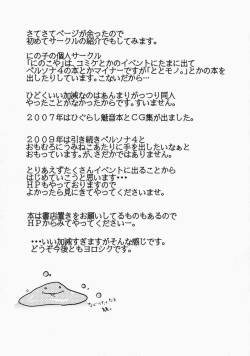 さてさてページが余ったので
初めてサークルの紹介でもしてみます。
にの子の個人サークル
「にのこや」は、コミケとかのイベントにたまに出て
ペルソナ4の本とかマイナーですが「ととモノ。」とかの本を
出したりしています。こないだから…
ひどくいい加減なのはあんまりがっつり同人
やったことがなかったからです。すいません。
2007年はひぐらし魅音本とCG集が出ました。
2009年は引き続きペルソナ4と
おもむろにうみねこあたりに手を出したいなぁと
おもっています。が、さだかではありません。
とりあえずたくさんイベントに出ることから
はじめていこうと思います・・・
HPもやっておりますので
よかったら見にきてやってくださいませ。
本は書店置きをお願いしてるものもあるので
HPからみてやってくださいー。
・・・いい加減すぎますがそんな感じです。
どうぞ今後ともヨロシクです。